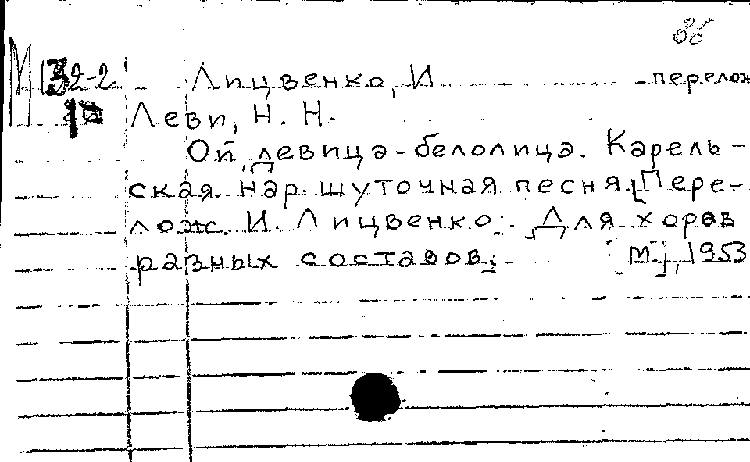 М 32-2 Лицвенко, И перелож
10 Леви, Н. Н.
Ой, девица-белолица. Карель-
ская нар. шуточная песня. [Пере-
лож. И. Лицвенко. Для хоров
разных составов. М.], 1953